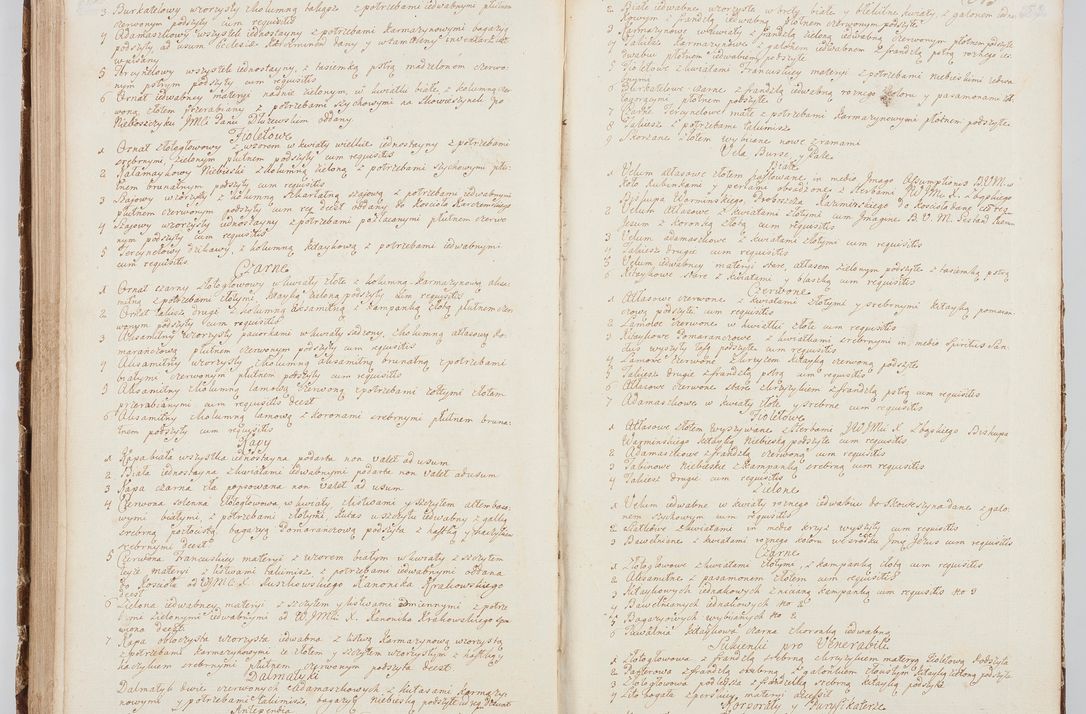 3 Burkatelowy wzorzysty z kolumną białąż z potrzebami iedwabnymi płutnem
czerwonym podszyty cum requisitis
4 Adamaszkowy wszystek iednostayny z potrzebami karmazynowymi bagazyą
podszyty ad usum Ecclesiae dany y
wpisany
5 Tercynelowy wszystek iednostayny, z tasiemką pstrą czerwo
nym pstrym podszyty cum requisitis
6 Ornat iedwabney materyi na dnie zielonym, w kwiaty białe z kolumną czer
woną złotem przerabiany z potrzebami szychowymi na po
Nieboszczyku JMci Panu Dłużewskim oddany
Fioletowe
1 Ornat złotogłowowy wzorem w kwiaty wielkie iednostayny z potrzebami
srebrnymi, zielonym płutnem podszyty cum requisitis
2 Niebieski z kolumną zieloną z potrzebami szychowymi płu-
tnem brunatnym podszyty cum requisitis
3 Szajowy wzorzysty z kolumną szkarłatną szajową z potrzebami iedwabnymi
płutnem czerwonym podszyty cum req deest oddany do Kościoła
4 Szajowy wzorzysty iednostayny z potrzebami pozłacanymi płutnem czerwo
nym podszyty cum requisitis
5 Tercynelowy z kolumną kitaykową z potrzebami iedwabnymi
cum requisitis
Czarne
1 Ornat czarny złotogłowy w kwiaty złote z kolumną karmazynową aksa-
mitną z potrzebami złotymi, kitayką zieloną podszyty cum requisitis
2 Ornat taliusz drugi z kolumną aksamitną z kampanką złotą płutnem czer
wonym podszyty cum requisitis
3 Aksamitny wzorzysty w kwiaty sadzony, z kolumną atłasową po-
maranczową płutnem czerwonym podszyty cum requisitis
4 Aksamitny wzorzysty z kolumną aksamitną brunatną z potrzebami
białymi czerwonym płutnem podszyty cum requisitis
5 Aksamitny z kolumną lamową czerwoną z potrzebami żołtymi złotem
przerabianymi cum requisitis deest
6 Aksamitny z kolumną lamową z koronami srebrnymi płutnem bruna-
tnem podszyty cum requisitis
Kapy
1 Kapa biała wszystka iednostayna podarta non valet ad usum
2 Biała iednostayna z kwiatami iedwabnymi podarta non valet ad usum
3 Kapa czarna cła ponsowana non valet ad usum
4 Czerwona solenna złotogłowowa w kwiaty z listwami y szczytem altembaso-
wymi białymi z potrzebami złotymi, kutas u szczytu iedwabny z gałką
srebrną pozłocistą bagazyą pomaranczową podszyta z haftką y haczykiem
srebrnymi deest
5 Czerwona Francuskiey materyi z wzorem białym w kwiaty z szczytem
teyze materyi z listwami talimisz z potrzebami iedwabnymi oddana
do Kościoła od WJMC X. Kanonika Krakowskiego
deest
6 Zielona iedwabney materyi z szczytem y listwami odmiennymi z potrze
bami zielonymi iedwabnymi od WJMci X. Kanonika Krakowskiego spra
wiona deest
7 Kapa obłoczysta wzorzysta iedwabna z listwą karmazynową wzorzystą
z potrzebami karmazynowymi ze złotem y szczytem wzorzystym z haftką y
haczykiem srebrnymi płutnem czerwonym podszyta deest
Dalmatyki
Dalmatyk dwie czerwonych Adamaszkowych z kutasami karmazy
nowymi, y potrzebami talimisz, bagazyą niebieską podszyte cum req
Antependia
2 Białe iedwabne wzorzysta w bryty białe y błękitne kwiaty, z galonem iedwa-
bowym z frandzlą iedwabną płotnem czerwonym podszyte
3 Karmazynowe w kwiaty z frandzlą zieloną iedwabną czerwonym płótnem podszyte
4 Taliusz karmazynowe z galonem iedwabnem z frandzlą pstrą rożnego ie-
dwabiu płotnem iedwabnym podszyte
5 Fioletowe z kwiatami Francuskiey materyi z potrzebami niebieskimi iedwa
bnymi
6 Burkatelowe czarne z frandzlą iedwabną rożnego koloru y pasamonami
płótnem podszyte
7 Białe Tercynelowe małe z potrzebami karmazynowymi płótnem podszyte
8 Taliusz z potrzebami talimisz
9 Skorzane złotem wybiiane nowe z ramami
Vela Bursae, y Pale
Białe
1 Velum atłasowe złotem haftowane in medio Imago Assumptionis B.V.M. w
koło rubinkami y perłami obsadzone z Herbami WJM. X. Zbąskiego
Biskupa Warminskiego, Proboszcza Kazimirskiego do Kościoła dany cum req-
2 Velum Atłasowe z kwiatami złotymi cum Imagine B.V.M. Gestand Puerum
Jezum z koronką złotą cum requisitis
3 Velum adamaszkowe z kwiatami złotymi cum requisitis
4 Taliusz drugie cum requisitis
5 Velum iedwabney materyi stare, atłasem zielonym podszyte z tasiemką pstrą
6 Kitaykowe stare z kwiatami y blaszką cum requisitis
Czerwone
1 Atłasowe czerwone z kwiatami złotymi y srebrnymi kitayką pomaran-
czową podszyte cum requisitis
2 Lamowe czerwone w kwiatki złote cum requisitis
3 Kitaykowe pomaranczowe z kwiatkami srebrnymi in medio Spiritus San-
ctus wyszyty tąż podszyte cum requisitis
4 Lamowe czerwone z krzyżem kitayką czerwoną podszyte
5 Taliusz drugie z frandzlą pstrą cum requisitis
6 Atłasowe czerwone stare z krzyżykiem z frandzlą pstrą cum requisitis
7 Adamaszkowe w kwiaty złote y srebrne cum requisitis
Fioletowe
1 Atłasowe złotem wyszywane z Herbami JWJMci X. Zbąskiego Biskupa
Warminskiego kitayką niebieską podszyte cum requisitis
2 Adamaszkowe z frandzlą czerwoną cum requisitis
3 Tabinowe niebieskie z kampanką srebrną cum requisitis
4 Taliusz drugie cum requisitis
Zielone
1 Velum iedwabne w kwiaty rożnego iedwabiu do dane z galo-
nem szychowym cum requisitis
2 Siatkowe z kwiatami in medio krzyż wyszyty cum requisitis
3 Bawełniane z kwiatami rożnego koloru w srodku Imię Jezus cum requisitis
Czarne
1 Złotogłowowe z kwiatami złotymi, z kampanką złotą cum requisitis
2 Aksamitne z pasamonem złotem cum requisitis
3 Kitaykowych iednakowych z niciąną kampanką cum requisitis No 3
4 Bawełnianych iednakowych No 2
5 Bagazyowych wybiianych No 2
6 kitaykowa czarna z koronką iedwabną
Sukienki pro Venerabili
1 Złotogłowowa z frandzlą srebrną z krzyżykiem materyą fioletową podszyta
2 z frandzlą srebrną, z galonkiem kitayką żołtą podszyta
3 Złotogłowowa podlejsza z frandzelką srebrną kitayką podszyta
4 Lito bogata z perskiey materyi decessit
Korporały y Puryfikaterze